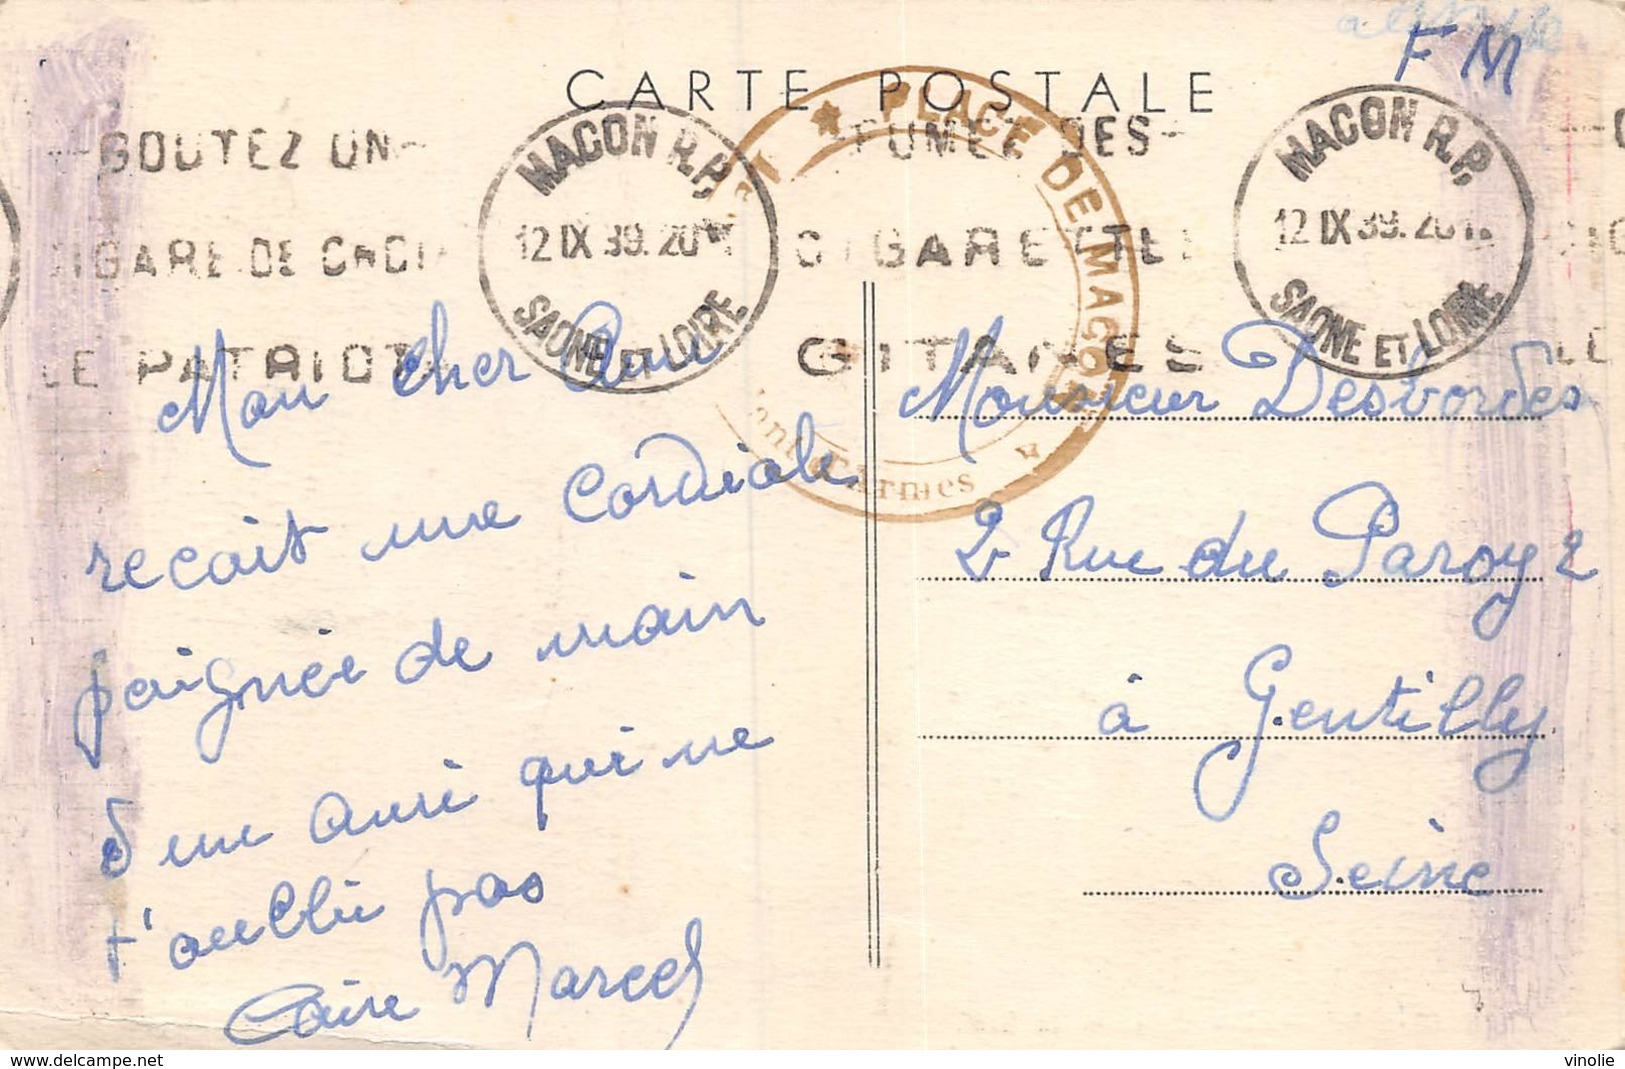 F M
CARTE POSTALE
GOUTEZ UN
CIGARE DE CHOIX
LE PATRIOTE
MACON R.P.
12 IX 39. 20
SAONE ET LOIRE
FUMEZ DES
CIGARETTES
GITANES
PLACE DE MACON
d'Armes
MACON R.P.
12 IX 39. 20
SAONE ET LOIRE
LE
Mon cher Ami
recait une cordiale
paignée de main
d'un ami qui ne
t'oublie pas
Caire Marcel
Monsieur Desbordes
2 Rue du Paroy 2
à Gentilly
Seine
www.delcampe.net
vinolie